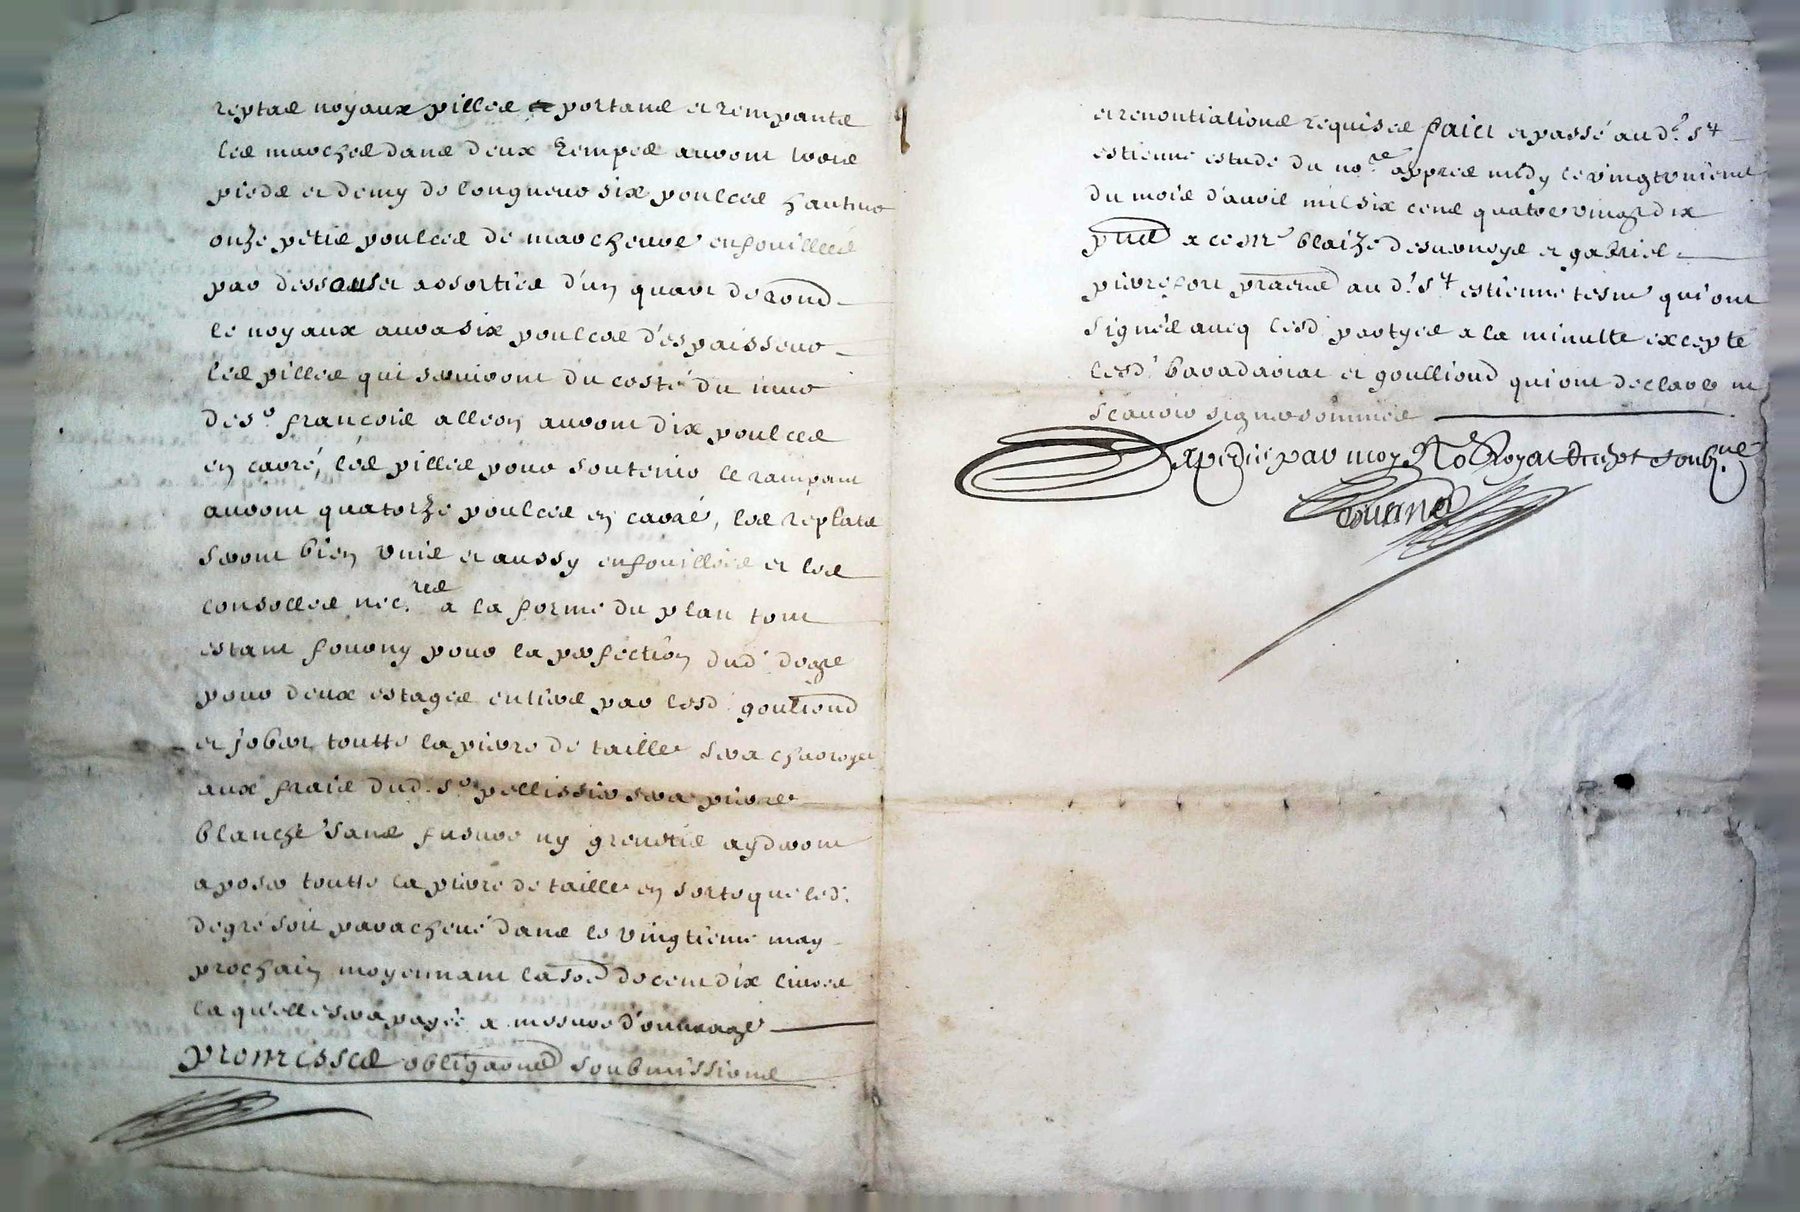 reptas noyaux pilles portans et rempants
les marches dans deux rempes auront trois
pieds et demy de longueur six poulces hauteur
onze petis poulces de marcheure enfouillees
par dessous et assorties d'un quart de rond
le noyaux aura six poulces d'espaisseur
les pilles qui seruiront du costé du mur
de sr françois alleon auront dix poulces
en carré, les pilles pour soutenir le rampant
auront quatorze poulces en carré, les replats
seront bien unis et aussy enfouillées et les
consolles nec.res a la forme du plan tout
estant fourny pour la perfection dud. degre
pour deux estages entiers par lesd. gouliond
et jobert toutte la pierre de taille sera charoyer
aux frais dud. sr pellissier sera pierre
blanche sans ny ayderont
a poser toutte la pierre de taille en sorte que led.
degre soit parachevé dans le vingtieme may
prochain moyennant la so.e de cent dix liures
laquelle sera payée a mesure d'ouurage
promisses obliga.ons soubmissions
et renontiations requises faict et passé aud. St
estienne estude du no.re appres midy le vingt uniesme
du mois d'auril mil six cens quatre vingt dix
pns a ce mr blaize et gabriel
pierrefort aud. St estienne tesm. qui ont
signés aueq lesd. partyes a la minutte excepté
lesd. et goulliond qui ont declaré ne
sçauoir signer sommés
Expedié par moy No.re Royal soub.né